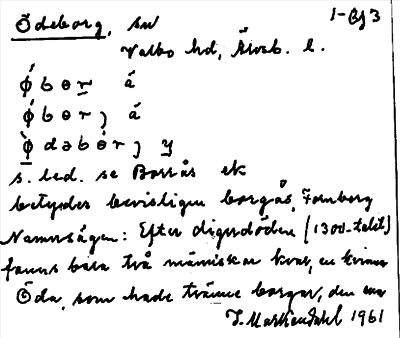 Ödeborg, sn 1-Bj3
Valbo hd, Älvsb. l.
ǿ b ɵ r á
ǿ b ɵ r ) á
ø̀ d ə b ɵ̀ r ) y
s. led. se Borrås etc
betyder bevisligen borgås, Fornborg
Namnsägen: Efter digerdöden (1300-talet)
fanns bara två människor kvar, en kvinna
Öda, som hade tvänne borgar, den ena
J. Markendahl 1961